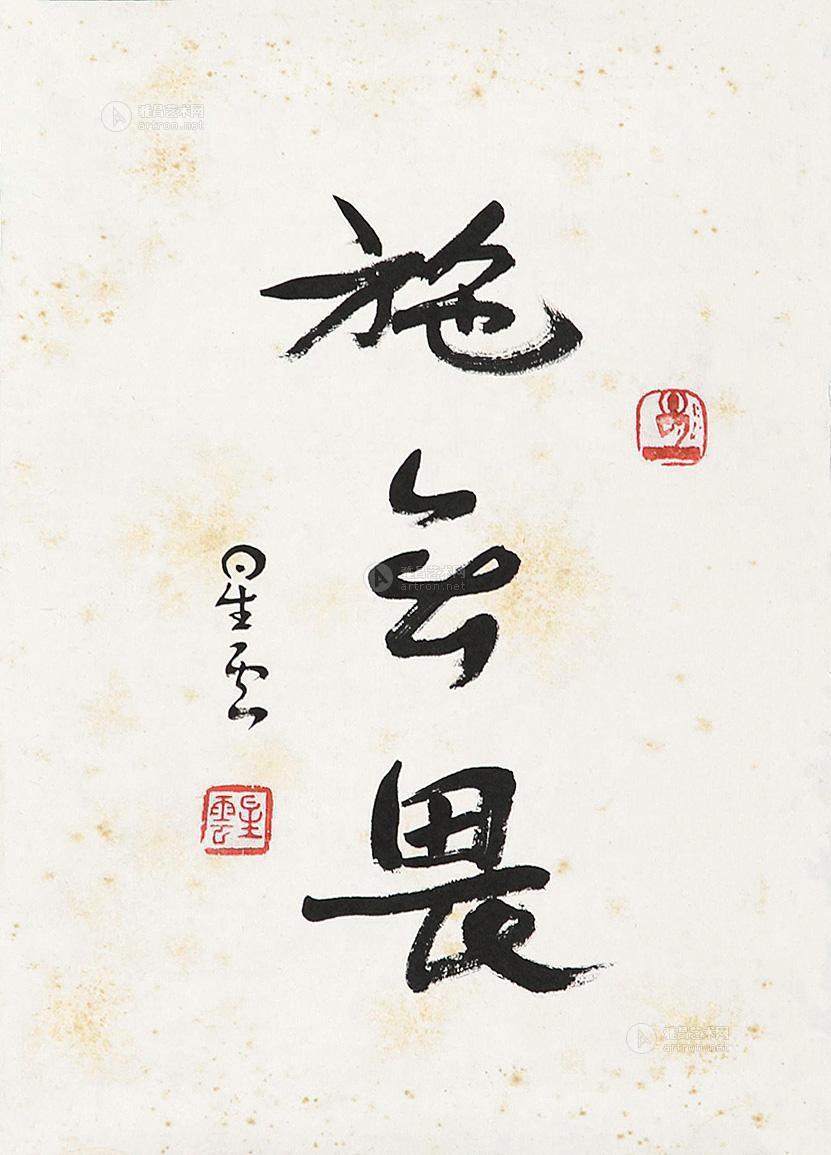 施無畏
星雲
星雲
雅昌艺术网
artron.net
雅昌艺术网
artron.net
雅昌艺术网
artron.net